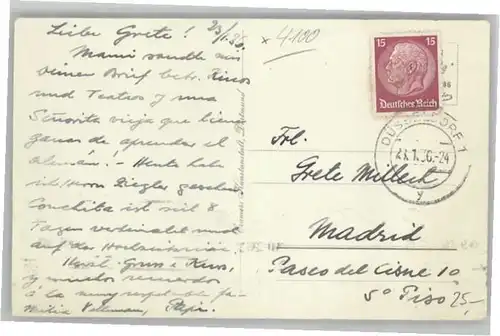 Liebe Grete! 23/1.36.
Mami sandte mir
deinen Brief betr. Kinos
und Teatros y una
Señorita vieja que tiene
ganas de aprender el
alemán. - Heute habe
ich Herrn Ziegler gesehen
Conchita ist seit 8
Tagen verheiratet und
auf der Hochzeitsreise.
Gruss & Kuss,
y muchos recuerdos
á la muy respetable fa-
milia
x 4100
15 15
Deutsches Reich
DÜSSELDORF 1
23.1.36.-24
y
Frl.
Grete Millert
Madrid
Paseo del Cisne 10
5º Piso
25,-